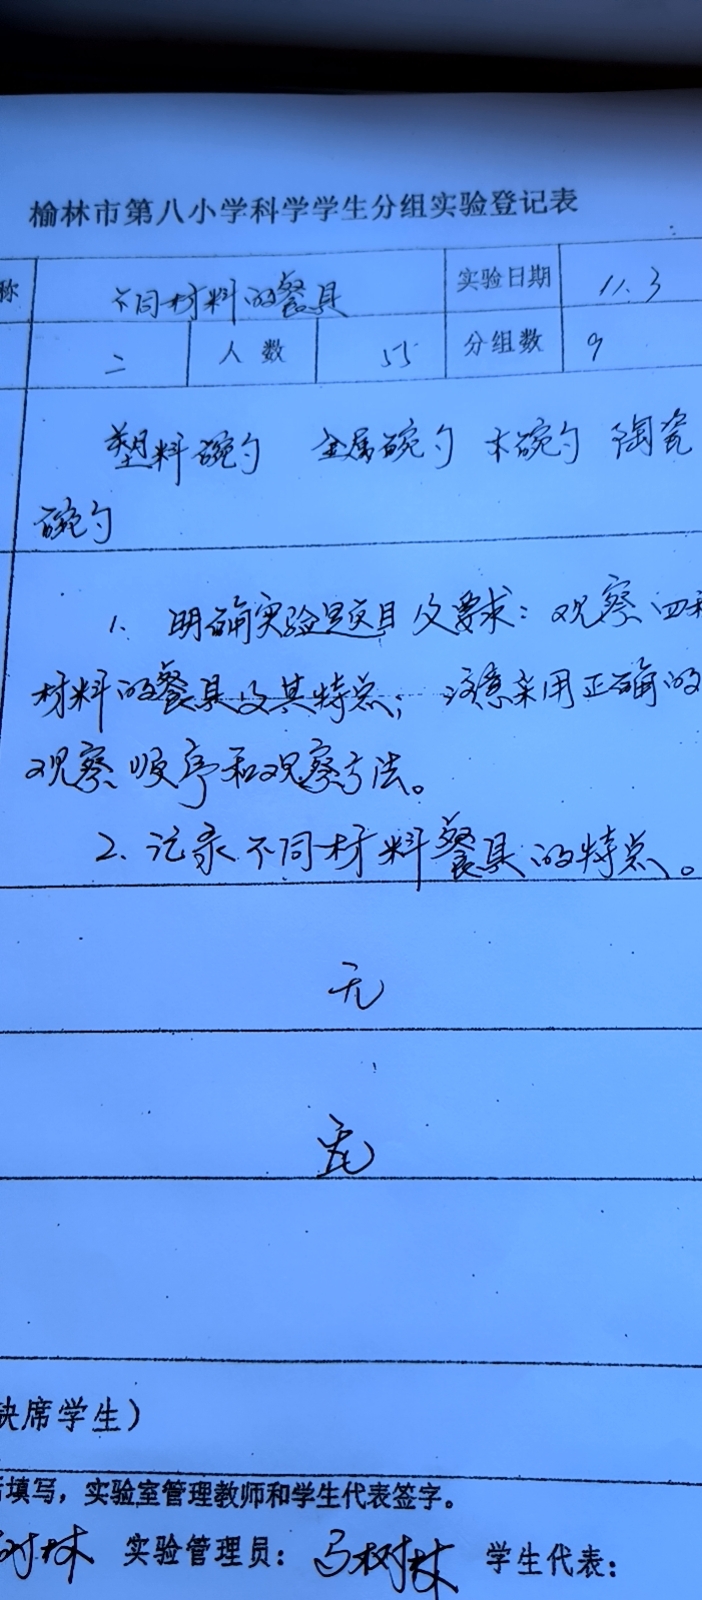 榆林市第八小学科学学生分组实验登记表
称 不同材料的餐具 实验日期 11.3
二 人数 55 分组数 9
塑料碗勺 金属碗勺 木碗勺 陶瓷
碗勺
1、明确实验题目及要求：观察四种
材料的餐具及其特点；注意采用正确的
观察顺序和观察方法。
2、记录不同材料餐具的特点。
无
缺席学生）
后填写，实验室管理教师和学生代表签字。
树林 实验管理员：马树林 学生代表：